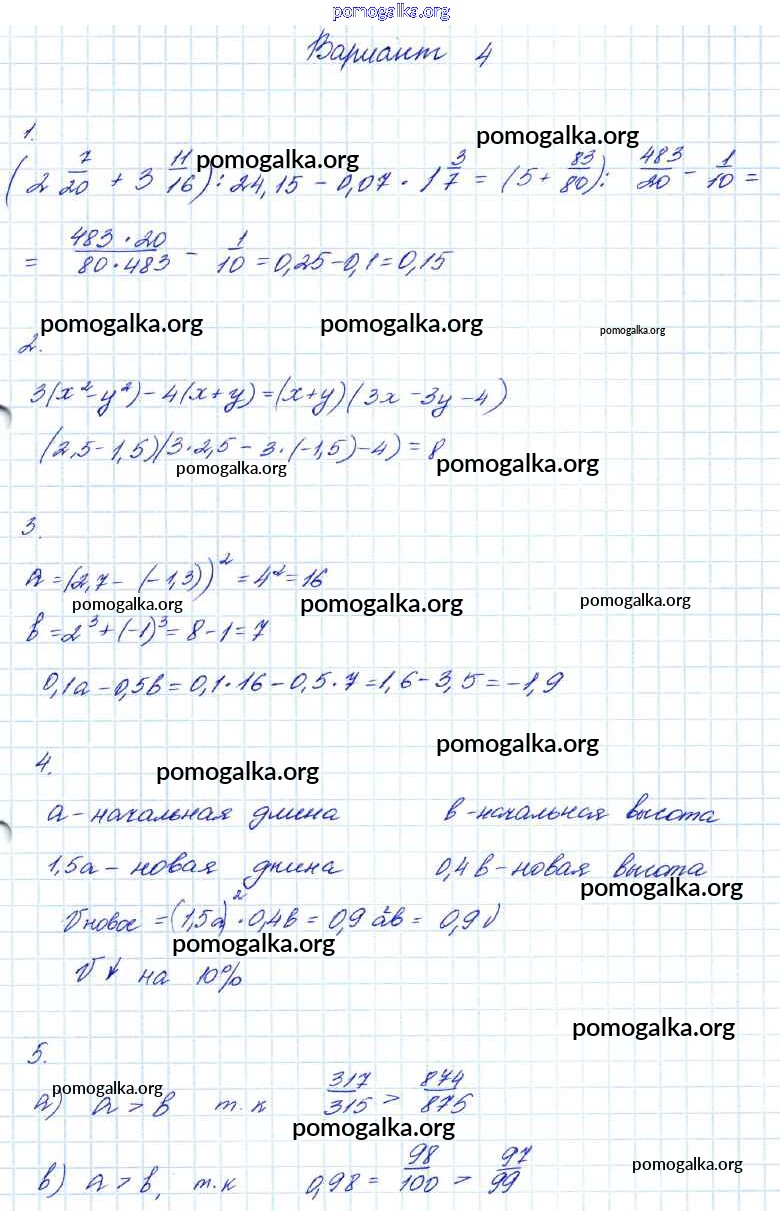 pomogalka.org
Вариант 4
1.
pomogalka.org
(2 7/20 + 3 11/16) : 24,15 - 0,07 · 1 3/7 = (5 + 83/80) : 483/20 - 1/10 =
pomogalka.org
= 483·20/80·483 - 1/10 = 0,25 - 0,1 = 0,15
pomogalka.org pomogalka.org pomogalka.org
2.
3(x² - y²) - 4(x + y) = (x + y)(3x - 3y - 4)
(2,5 - 1,5)(3·2,5 - 3·(-1,5) - 4) = 8
pomogalka.org pomogalka.org
3.
a = (2,7 - (-1,3))² = 4² = 16
pomogalka.org pomogalka.org pomogalka.org
b = 2³ + (-1)³ = 8 - 1 = 7
0,1a - 0,5b = 0,1·16 - 0,5·7 = 1,6 - 3,5 = -1,9
pomogalka.org
4.
pomogalka.org
a - начальная длина b - начальная высота
1,5a - новая длина 0,4b - новая высота
pomogalka.org
Vновое = (1,5a)² · 0,4b = 0,9 a²b = 0,9V
pomogalka.org
V↓ на 10%
pomogalka.org
5.
pomogalka.org
а) a > b т.к 317/315 > 874/875
pomogalka.org
в) a > b, т.к 0,98 = 98/100 > 97/99
pomogalka.org